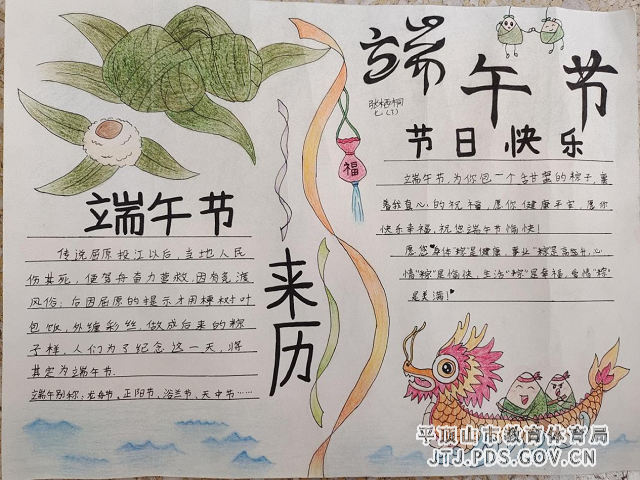 端午节
节日快乐
张栖桐
七(1)
端午节,为你包一个含甘蜜的粽子,裹
着我真心的祝福,愿你健康平安,愿你
快乐幸福,祝您端午节愉快!
愿您身体"粽"是健康,事业"粽"是高升,心
情"粽"是愉快,生活"粽"是幸福,爱情"粽"
是美满!
福
端午节
来历
传说屈原投江以后,当地人民
伤其死,便驾舟奋力营救,因有竞渡
风俗;后因屈原的提示才用楝树叶
包饭,外缠彩丝,做成后来的粽
子样,人们为了纪念这一天,将
其定为端午节.
端午别称:龙舟节,正阳节,浴兰节,天中节……
平顶山市教育体育局
JTJ.PDS.GOV.CN